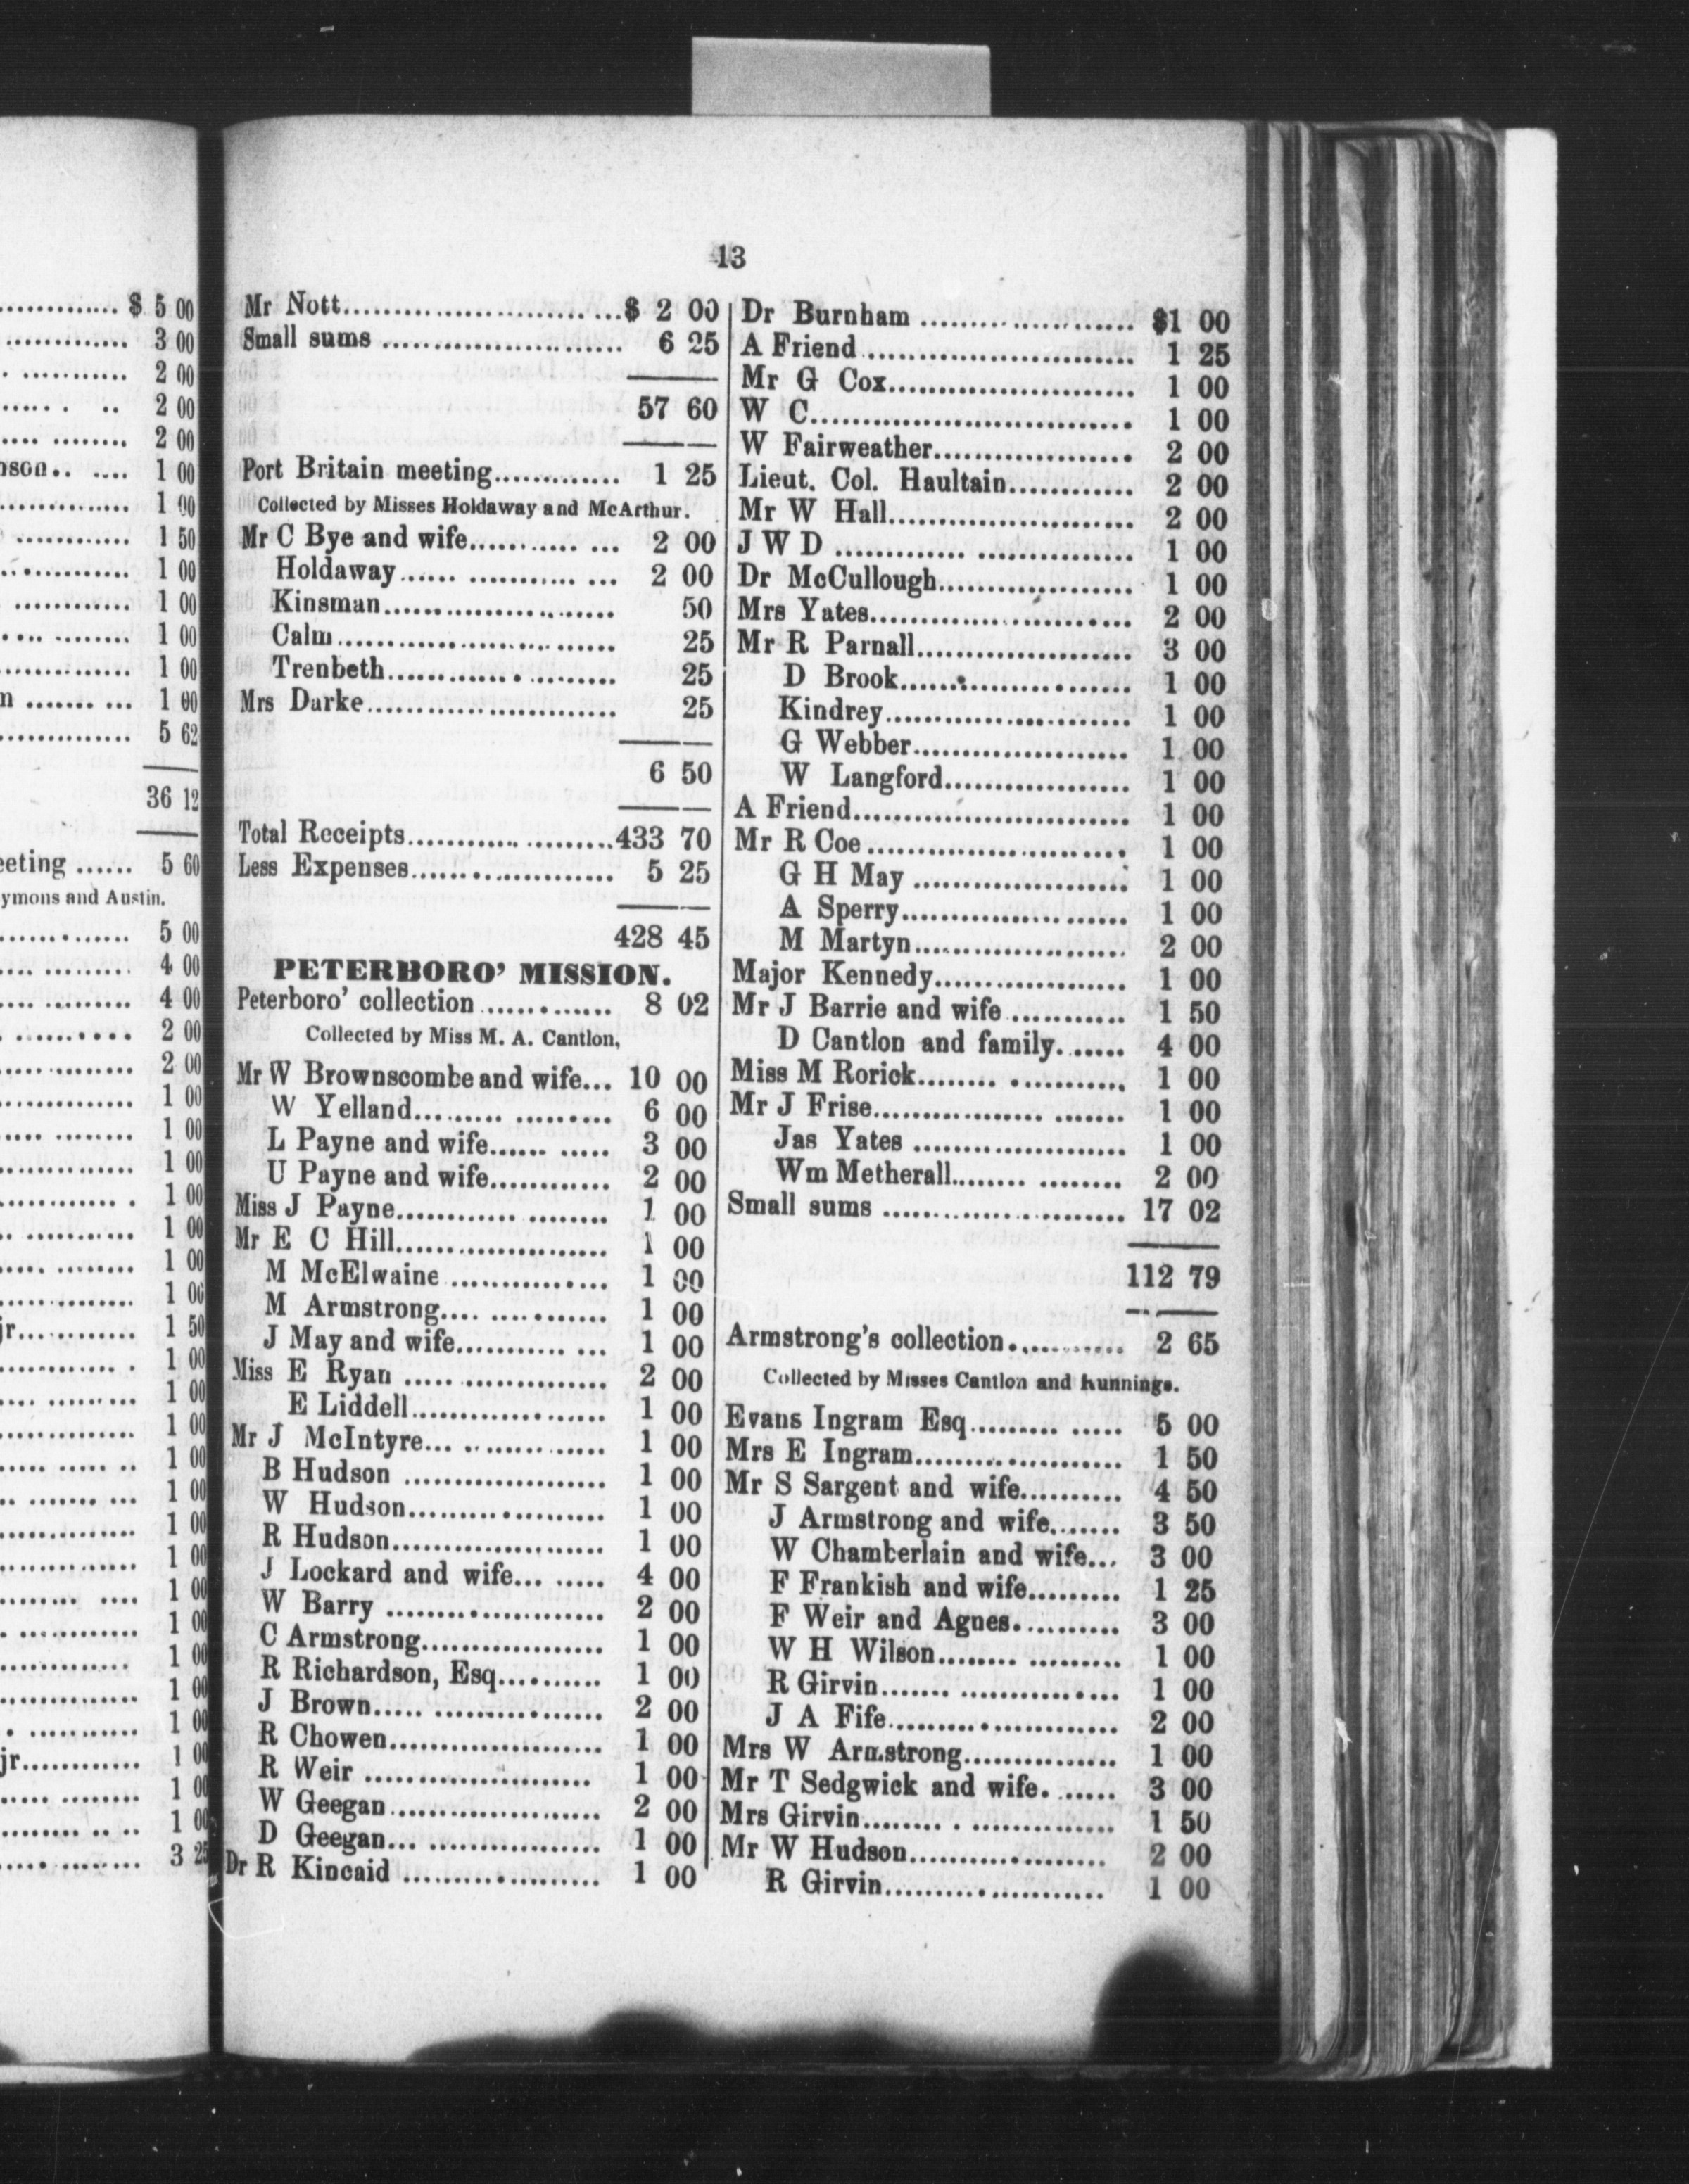 $ 5 00
3 00
2 00
2 00
2 00
1 00
1 00
1 50
1 00
1 00
1 00
1 00
1 00
5 62
36 12
eeting ...... 5 60
ymons and Austin.
5 00
4 00
4 00
2 00
2 00
1 00
1 00
1 00
1 00
1 00
1 00
1 00
jr............ 1 50
1 00
1 00
1 00
1 00
1 00
1 00
1 00
1 00
1 00
1 00
1 00
1 00
jr............ 1 00
1 00
1 00
3 25
13
Mr Nott............................$ 2 00
Small sums ........................ 6 25
57 60
Port Britain meeting............. 1 25
Collected by Misses Holdaway and McArthur.
Mr C Bye and wife........... ... 2 00
Holdaway...... ............ ... 2 00
Kinsman....................... 50
Calm............................ 25
Trenbeth....................... 25
Mrs Darke......................... 25
6 50
Total Receipts....................433 70
Less Expenses.................... 5 25
428 45
PETERBORO' MISSION.
Peterboro' collection ............. 8 02
Collected by Miss M. A. Cantlon,
Mr W Brownscombe and wife... 10 00
W Yelland......... ......... 6 00
L Payne and wife...... ..... 3 00
U Payne and wife............ 2 00
Miss J Payne............ ........ 1 00
Mr E C Hill...................... 1 00
M McElwaine ................ 1 00
M Armstrong.... ........... 1 00
J May and wife........... ... 1 00
Miss E Ryan ..... ............... 2 00
E Liddell.................... 1 00
Mr J McIntyre... .............. 1 00
B Hudson .................... 1 00
W Hudson.................... 1 00
R Hudson..................... 1 00
J Lockard and wife... ..... 4 00
W Barry ...................... 2 00
C Armstrong.................. 1 00
R Richardson, Esq.......... 1 00
J Brown..... ................. 2 00
R Chowen..................... 1 00
R Weir ....................... 1 00
W Geegan..................... 2 00
D Geegan... ................. 1 00
Dr R Kincaid .................... 1 00
Dr Burnham ...................... $1 00
A Friend........................... 1 25
Mr G Cox......................... 1 00
W C................................ 1 00
W Fairweather.................... 2 00
Lieut. Col. Haultain............ 2 00
Mr W Hall........................ 2 00
J W D ............. ............... 1 00
Dr McCullough................... 1 00
Mrs Yates.......................... 2 00
Mr R Parnall...................... 3 00
D Brook....................... 1 00
Kindrey........................ 1 00
G Webber..................... 1 00
W Langford.................. 1 00
A Friend............................ 1 00
Mr R Coe.......................... 1 00
G H May ..................... 1 00
A Sperry...................... 1 00
M Martyn..................... 2 00
Major Kennedy................... 1 00
Mr J Barrie and wife ........... 1 50
D Cantlon and family. ...... 4 00
Miss M Rorick........ ............ 1 00
Mr J Frise................. ....... 1 00
Jas Yates ..................... 1 00
Wm Metherall........ ........ 2 00
Small sums ........................ 17 02
112 79
Armstrong's collection............ 2 65
Collected by Misses Cantlon and Hunnings.
Evans Ingram Esq......... ..... 5 00
Mrs E Ingram..................... 1 50
Mr S Sargent and wife.......... 4 50
J Armstrong and wife....... 3 50
W Chamberlain and wife... 3 00
F Frankish and wife......... 1 25
F Weir and Agnes........... 3 00
W H Wilson........ ......... 1 00
R Girvin....... ................ 1 00
J A Fife....................... 2 00
Mrs W Armstrong............... 1 00
Mr T Sedgwick and wife. ...... 3 00
Mrs Girvin........ . .............. 1 50
Mr W Hudson.................... 2 00
R Girvin...................... 1 00